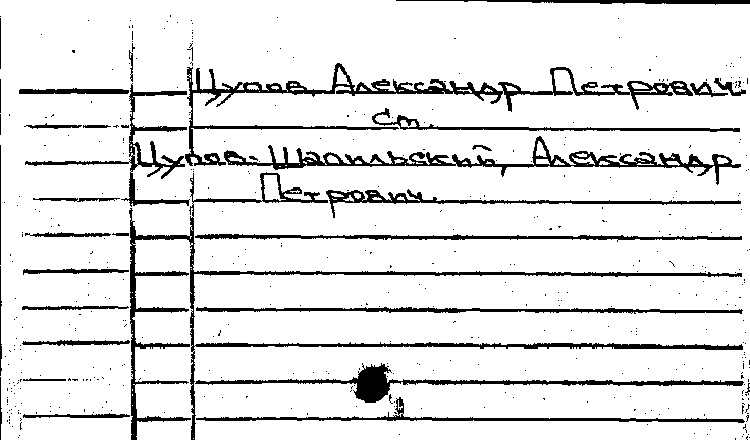 Цупов, Александр Петрович
см.
Цупов-Шапильский, Александр
Петрович.